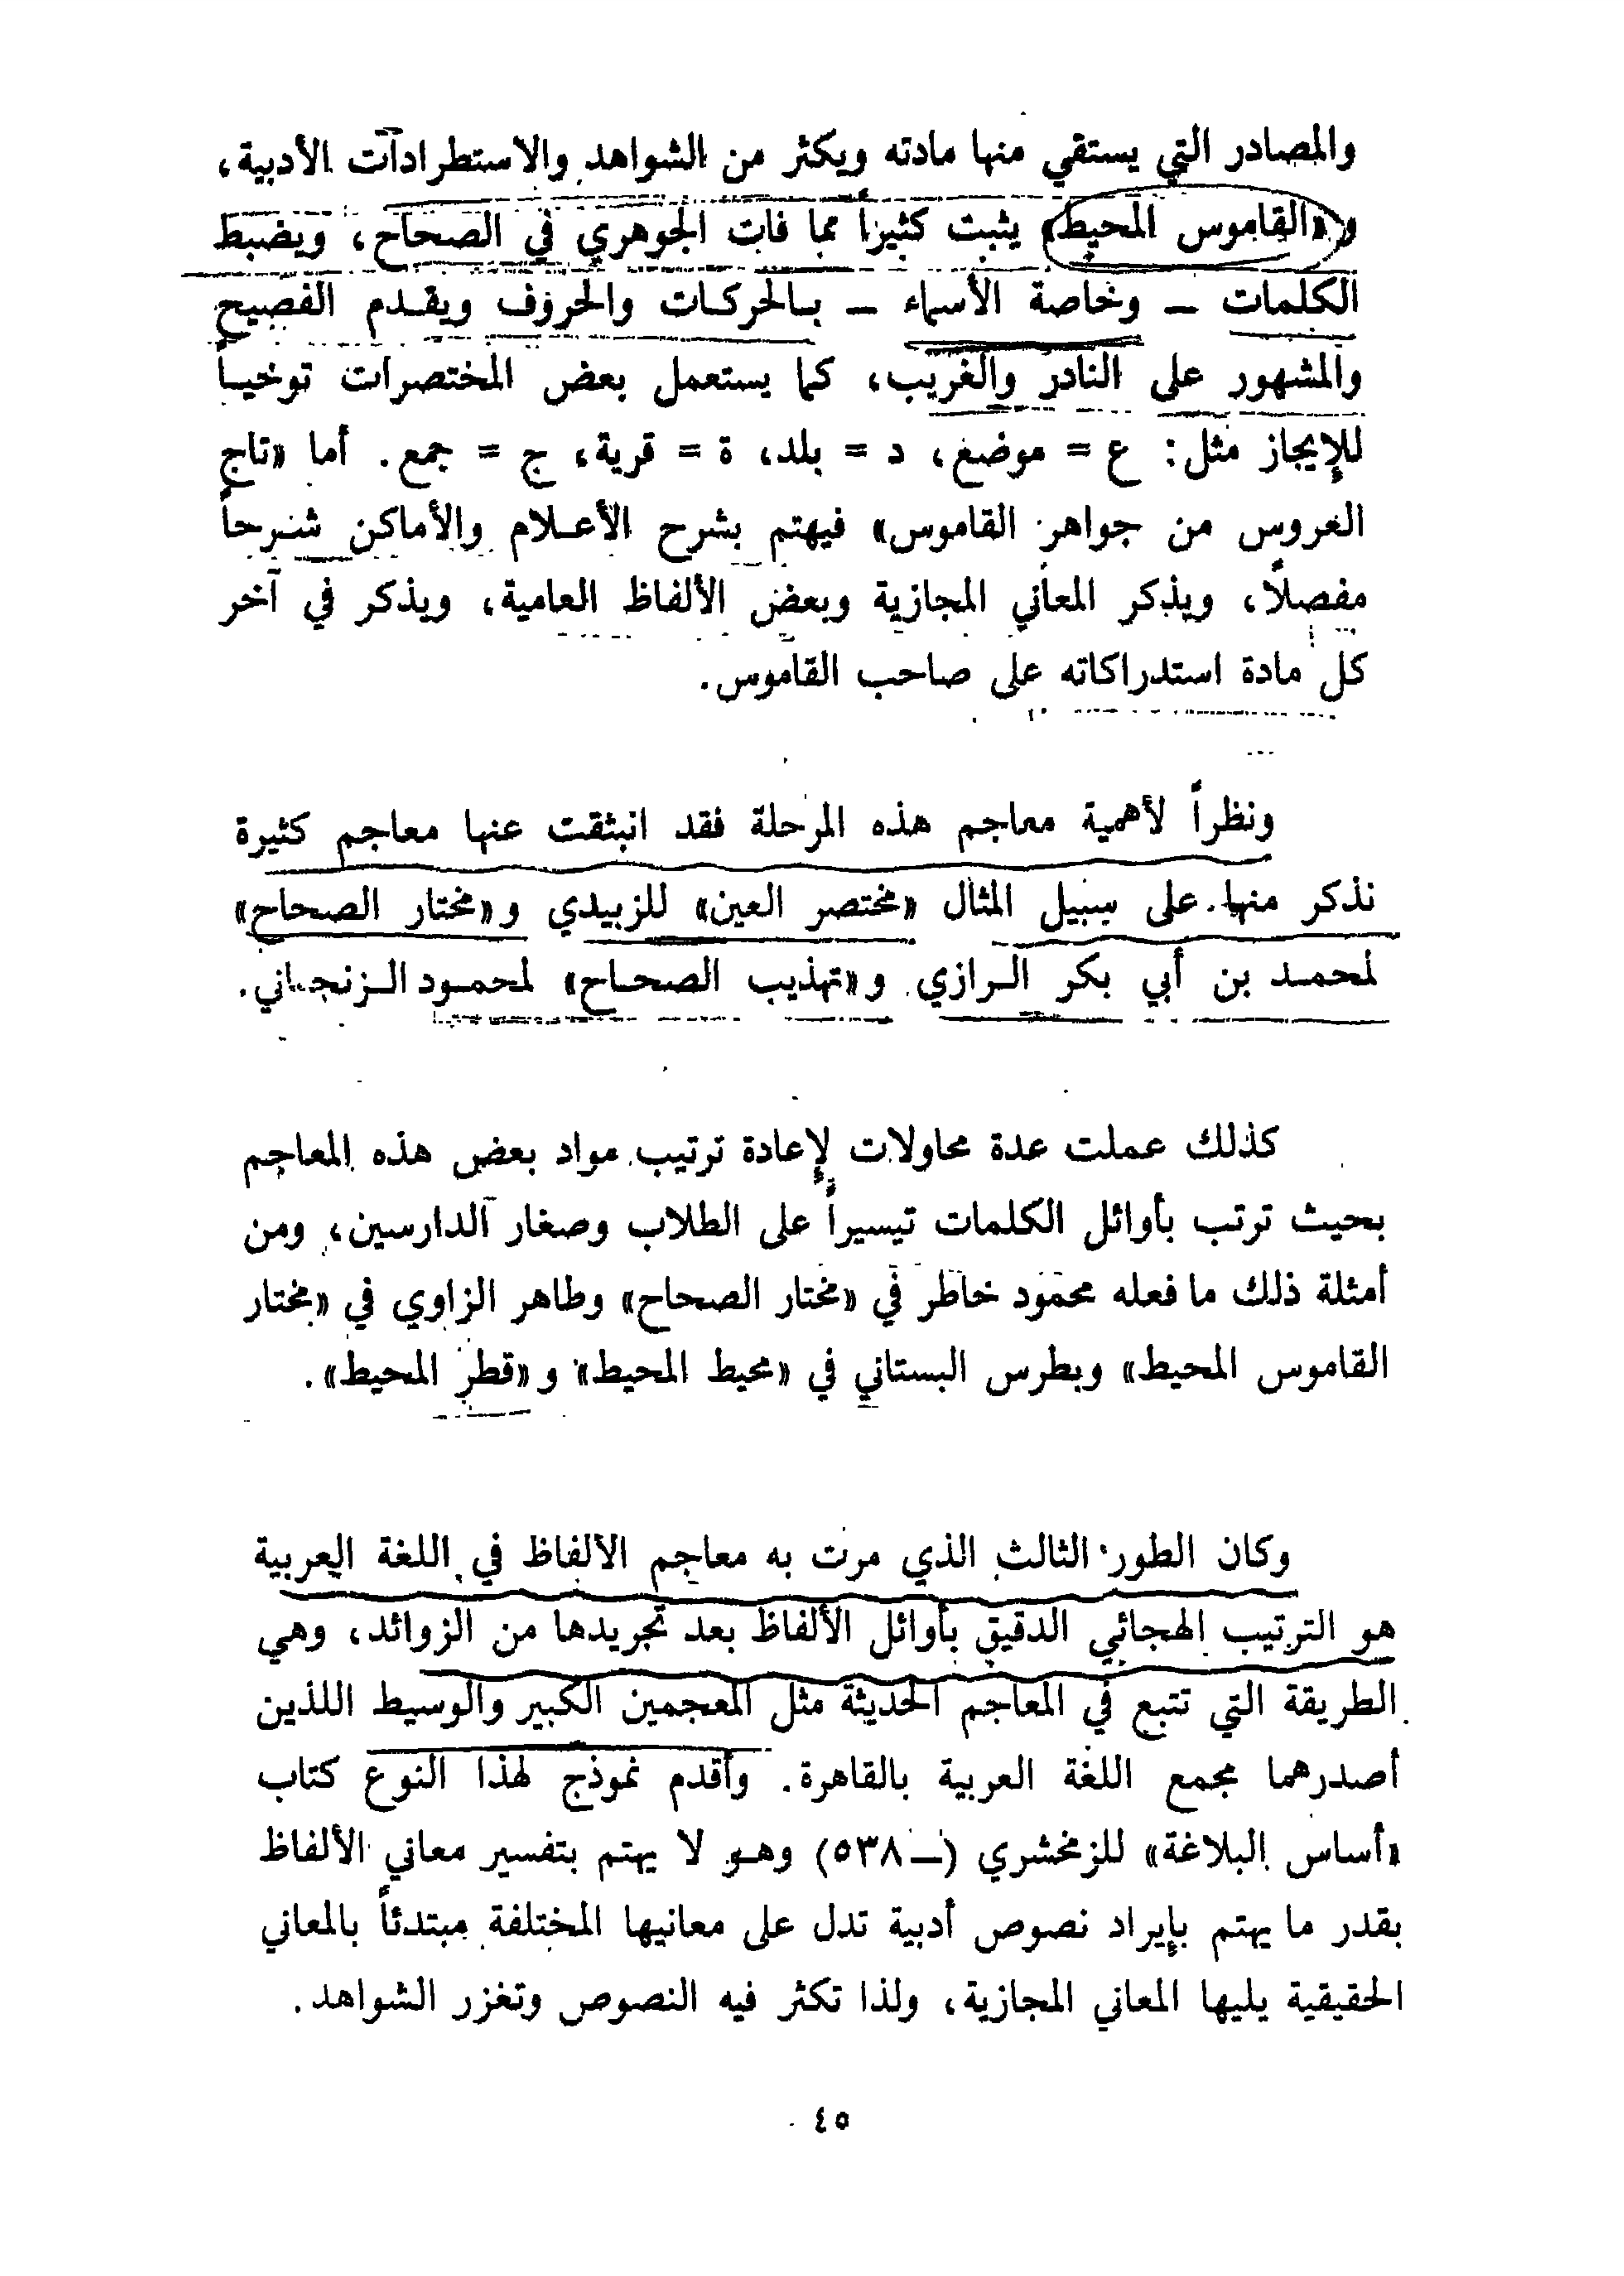 والمصادر التي يستقي منها مادته ويكثر من الشواهد والاستطرادات الأدبية،
و«القاموس المحيط» يثبت كثيراً مما فات الجوهري في الصحاح، ويضبط
الكلمات ــ وخاصة الأسماء ــ بالحركات والحروف ويقدم الفصيح
والمشهور على النادر والغريب، كما يستعمل بعض المختصرات توخياً
للإيجاز مثل: ع = موضع، د = بلد، ة = قرية، ج = جمع. أما «تاج
العروس من جواهر القاموس» فيهتم بشرح الأعلام والأماكن شرحاً
مفصلاً، ويذكر المعاني المجازية وبعض الألفاظ العامية، ويذكر في آخر
كل مادة استدراكاته على صاحب القاموس.
ونظراً لأهمية معاجم هذه المرحلة فقد انبثقت عنها معاجم كثيرة
نذكر منها على سبيل المثال «مختصر العين» للزبيدي و«مختار الصحاح»
لمحمد بن أبي بكر الرازي و«تهذيب الصحاح» لمحمود الزنجاني.
كذلك عملت عدة محاولات لإعادة ترتيب مواد بعض هذه المعاجم
بحيث ترتب بأوائل الكلمات تيسيراً على الطلاب وصغار الدارسين، ومن
أمثلة ذلك ما فعله محمود خاطر في «مختار الصحاح» وطاهر الزاوي في «مختار
القاموس المحيط» وبطرس البستاني في «محيط المحيط» و«قطر المحيط».
وكان الطور الثالث الذي مرت به معاجم الألفاظ في اللغة العربية
هو الترتيب الهجائي الدقيق بأوائل الألفاظ بعد تجريدها من الزوائد، وهي
الطريقة التي تتبع في المعاجم الحديثة مثل المعجمين الكبير والوسيط اللذين
أصدرهما مجمع اللغة العربية بالقاهرة. وأقدم نموذج لهذا النوع كتاب
«أساس البلاغة» للزمخشري (ــ٥٣٨) وهو لا يهتم بتفسير معاني الألفاظ
بقدر ما يهتم بإيراد نصوص أدبية تدل على معانيها المختلفة مبتدئاً بالمعاني
الحقيقية يليها المعاني المجازية، ولذا تكثر فيه النصوص وتغزر الشواهد.
٤٥